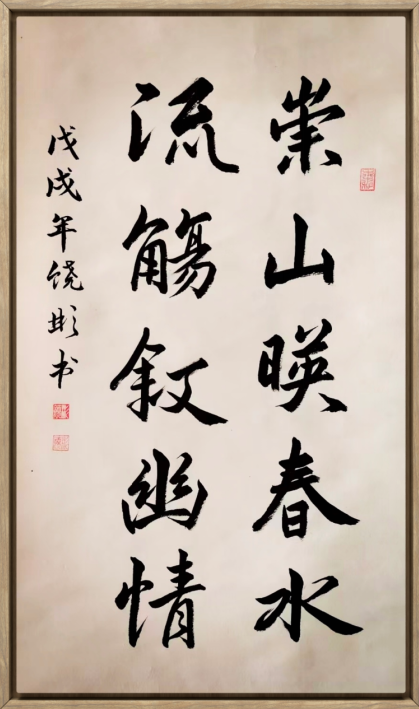 崇山暎春水
流觴叙幽情
戊戌年饶彬书